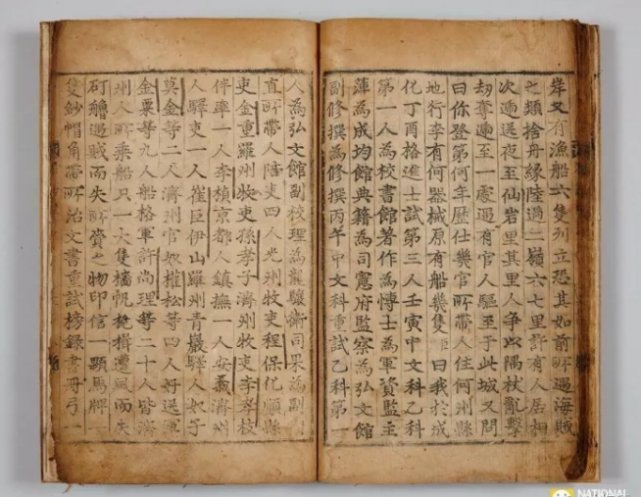 岸又有漁船六隻列立恐其如前所遇海賊
之類捨舟緣陸過二嶺六七里許有人居相
次遞送夜至仙岩里其里人爭以隅杖亂擊
劫奪遞至一處遇有官人驅至于此城又問
曰你登第何年歷仕幾官所帶人住何州縣
地行李有何器械原有船幾隻臣曰我於成
化丁酉格進士試第三人壬寅中文科乙科
第一人為校書館著作為博士為軍資監主
簿為成均館典籍為司憲府監察為弘文館
副修撰為修撰丙午中文科重試乙科第一
人為弘文館副校理為龍驤衛司果為副司
直所帶人陪吏四人光州牧吏程保化順縣
吏金重羅州牧吏孫孝子濟州牧吏李孝枝
伴率一人李楨京都人鎮撫一人安義濟州
人驛吏一人崔巨伊山羅州青巖驛人奴子
莫金等二人濟州官奴權松等四人好送軍
金粟等九人船格軍許尚理等二十人皆濟
州人所乘船只一大隻檣帆桅楫遭風而失
矴艣遇賊而失所賫之物印信一顆馬牌一
隻紗帽角帶所治文書重試榜錄書冊弓一
NATIONAL